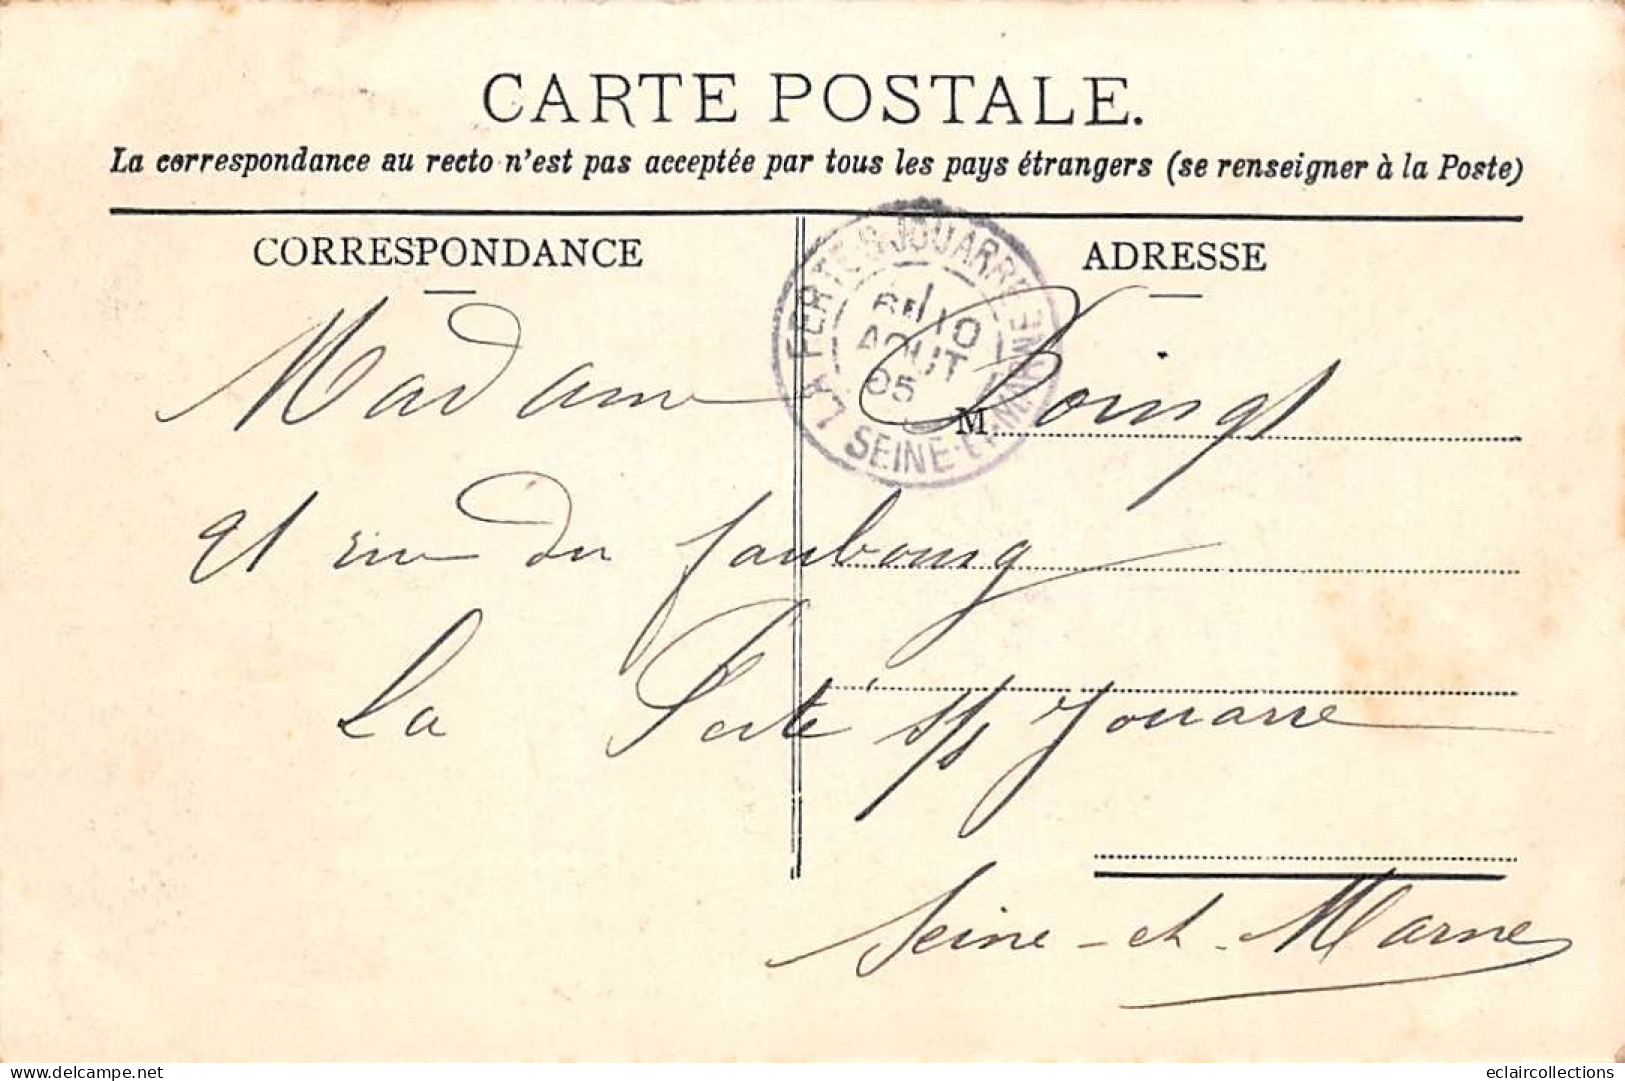 CARTE POSTALE.
La correspondance au recto n'est pas acceptée par tous les pays étrangers (se renseigner à la Poste)
CORRESPONDANCE
ADRESSE
LA FERTE-S-JOUARRE SEINE-ET-MARNE
10
AOUT
05
M
Madame
21 rue du faubourg
La Ferté s/s Jouarre
Seine-et-Marne
www.delcampe.net
eclaircollections